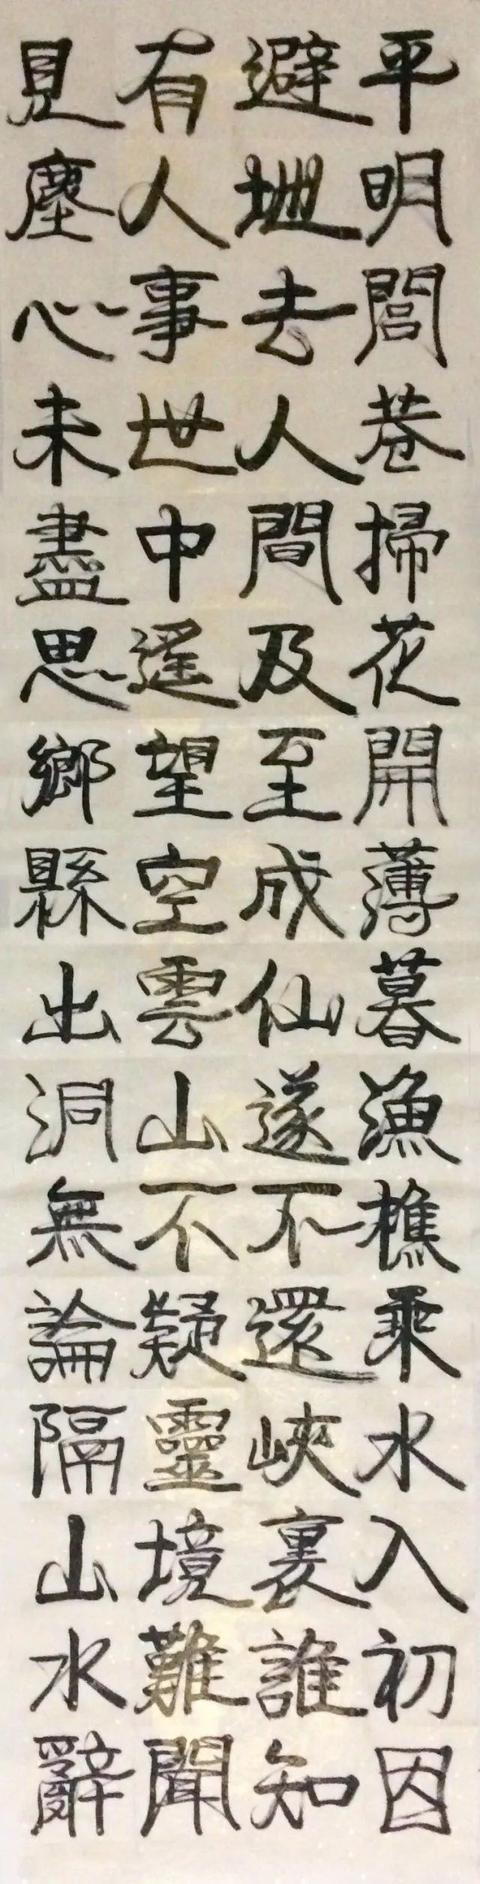 平明閭巷掃花開薄暮漁樵乘水入初因
避地去人間及至成仙遂不還峽裏誰知
有人事世中遙望空雲山不疑靈境難聞
見塵心未盡思鄉縣出洞無論隔山水辭